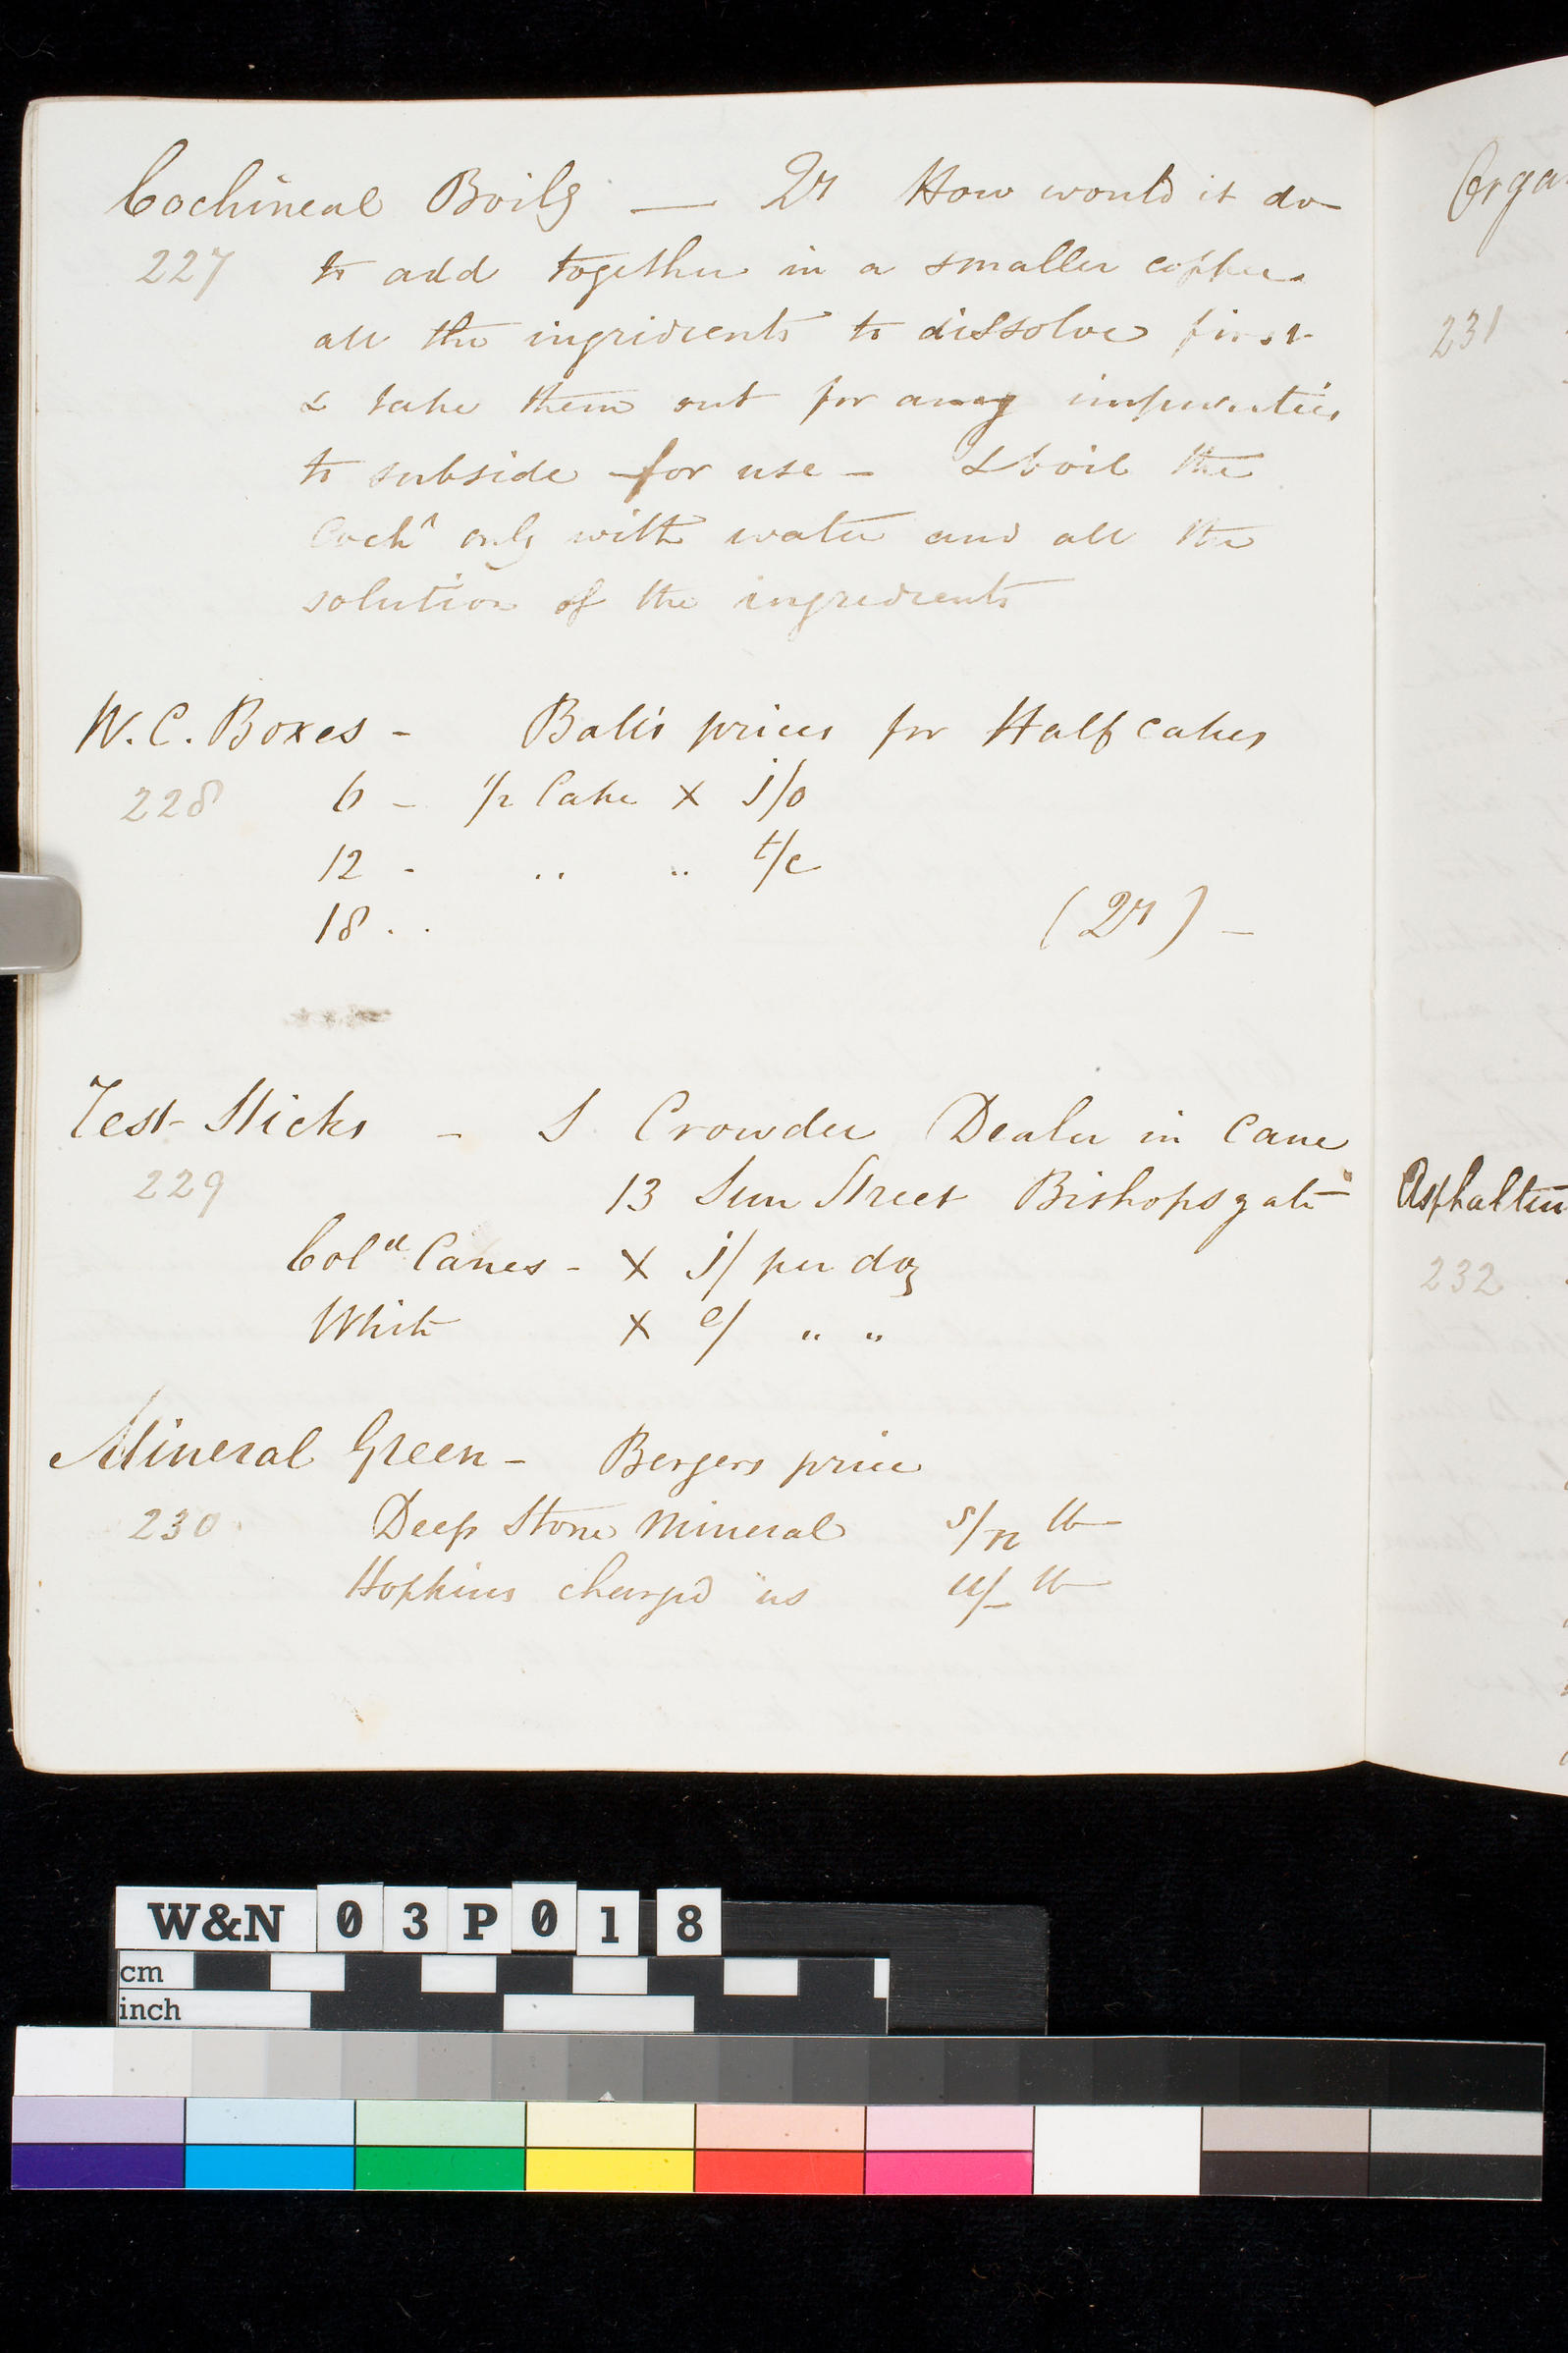 Cochineal Boilg — Qr How would it do
227 to add together in a smaller copper
all the ingridients to dissolve first
& take them out for any impurities
to subside for use – & boil the
Cochl only with water and all the
solution of the ingredients
W.C. Boxes – prices for Half cakes
228 6 – 1/2 Cake X j/o
12 - .. .. t/c
18 . . (Qr) –
Test Sticks – S Crowder Dealer in Cane
229 13 Sun Street Bishopsgate
Cold Canes – X j/ per doz
White X e/ " "
Mineral Green – Bergers price
230 Deep Stone Mineral s/n lb
Hopkins charged us u/– lb
Orga
231
Asphaltu
232
W&N 03P018
cm
inch